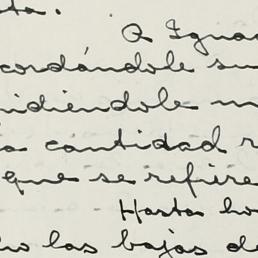 A Ignac
cordándole su
idiéndole m
a cantidad r
que se refiere
Hasta ho
no las bajas de